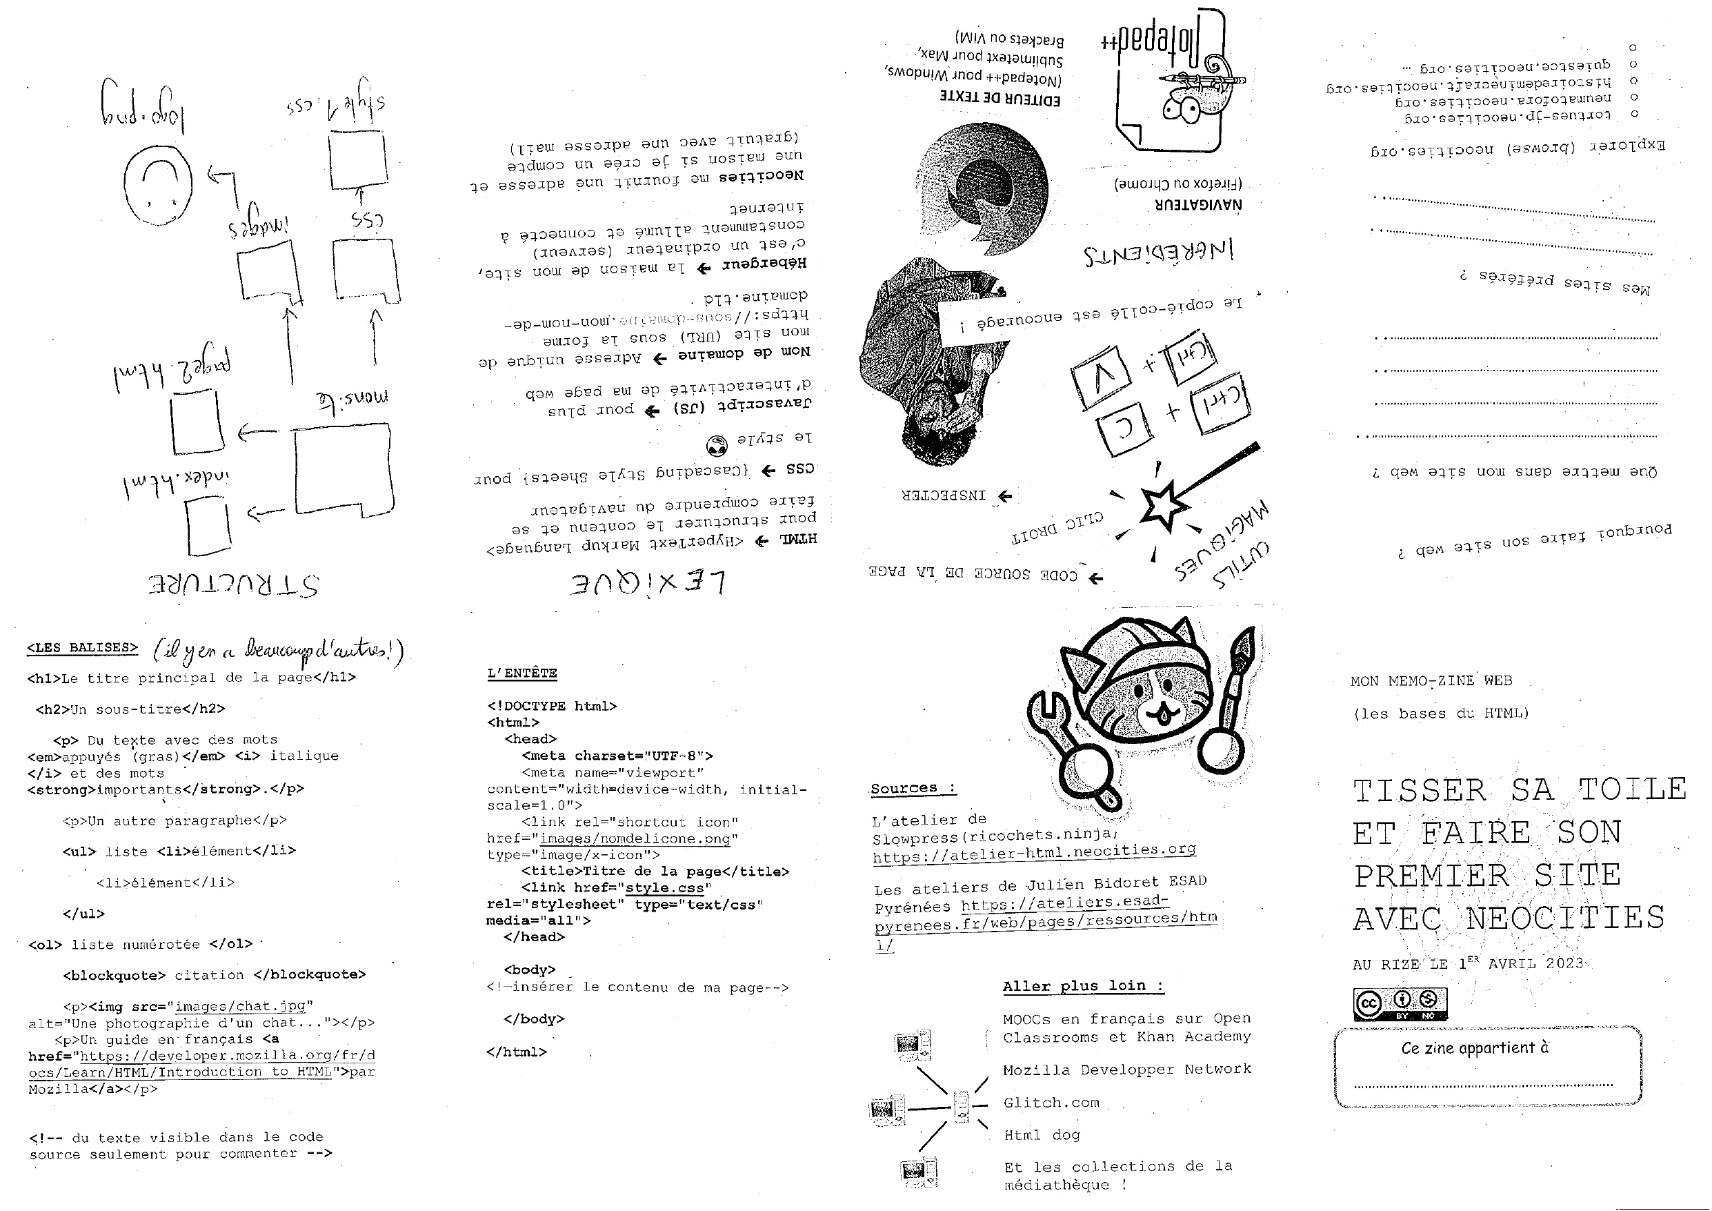 MON MEMO-ZINE WEB
(les bases du HTML)
TISSER SA TOILE
ET FAIRE SON
PREMIER SITE
AVEC NEOCITIES
AU RIZE LE 1ER AVRIL 2023
CC BY NC
Ce zine appartient à
Pourquoi faire son site web ?
Que mettre dans mon site web ?
Mes sites préférés ?
Explorer (browse) neocities.org
o tortues-jp.neocities.org
o neumatofora.neocities.org
o histoiredeminecraft.neocities.org
o quiestce.neocities.org …
o
OUTILS
MAGIQUES
→ CODE SOURCE DE LA PAGE
CLIC DROIT
→ INSPECTER
Ctrl + C
Ctrl + V
Le copié-collé est encouragé !
INGRÉDIENTS
NAVIGATEUR
(Firefox ou Chrome)
Notepad++
EDITEUR DE TEXTE
(Notepad++ pour Windows,
Sublimetext pour Max,
Brackets ou VIM)
LEXIQUE
HTML → <HyperText Markup Language>
pour structurer le contenu et se
faire comprendre du navigateur
CSS → {Cascading Style Sheets} pour
le style
Javascript (JS) → pour plus
d'interactivité de ma page web
Nom de domaine → Adresse unique de
mon site (URL) sous la forme
https://sous-domaine.mon-nom-de-
domaine.tld
Hébergeur → la maison de mon site,
c'est un ordinateur (serveur)
constamment allumé et connecté à
internet
Neocities me fournit une adresse et
une maison si je crée un compte
(gratuit avec une adresse mail)
STRUCTURE
index.html
monsite
page2.html
images
css
logo.png
style1.css
<LES BALISES> (il y en a beaucoup d'autres!)
<h1>Le titre principal de la page</h1>
<h2>Un sous-titre</h2>
<p> Du texte avec des mots
<em>appuyés (gras)</em> <i> italique
</i> et des mots
<strong>importants</strong>.</p>
<p>Un autre paragraphe</p>
<ul> liste <li>élément</li>
<li>élément</li>
</ul>
<ol> liste numérotée </ol>
<blockquote> citation </blockquote>
<p><img src="images/chat.jpg"
alt="Une photographie d'un chat..."></p>
<p>Un guide en français <a
href="https://developer.mozilla.org/fr/d
ocs/Learn/HTML/Introduction to HTML">par
Mozilla</a></p>
<!-- du texte visible dans le code
source seulement pour commenter -->
L'ENTÊTE
<!DOCTYPE html>
<html>
<head>
<meta charset="UTF-8">
<meta name="viewport"
content="width=device-width, initial-
scale=1.0">
<link rel="shortcut icon"
href="images/nomdelicone.png"
type="image/x-icon">
<title>Titre de la page</title>
<link href="style.css"
rel="stylesheet" type="text/css"
media="all">
</head>
<body>
<!—insérer le contenu de ma page-->
</body>
</html>
Sources :
L'atelier de
Slowpress(ricochets.ninja,
https://atelier-html.neocities.org
Les ateliers de Julien Bidoret ESAD
Pyrénées https://ateliers.esad-
pyrenees.fr/web/pages/ressources/htm
l/
Aller plus loin :
MOOCs en français sur Open
Classrooms et Khan Academy
Mozilla Developper Network
Glitch.com
Html dog
Et les collections de la
médiathèque !